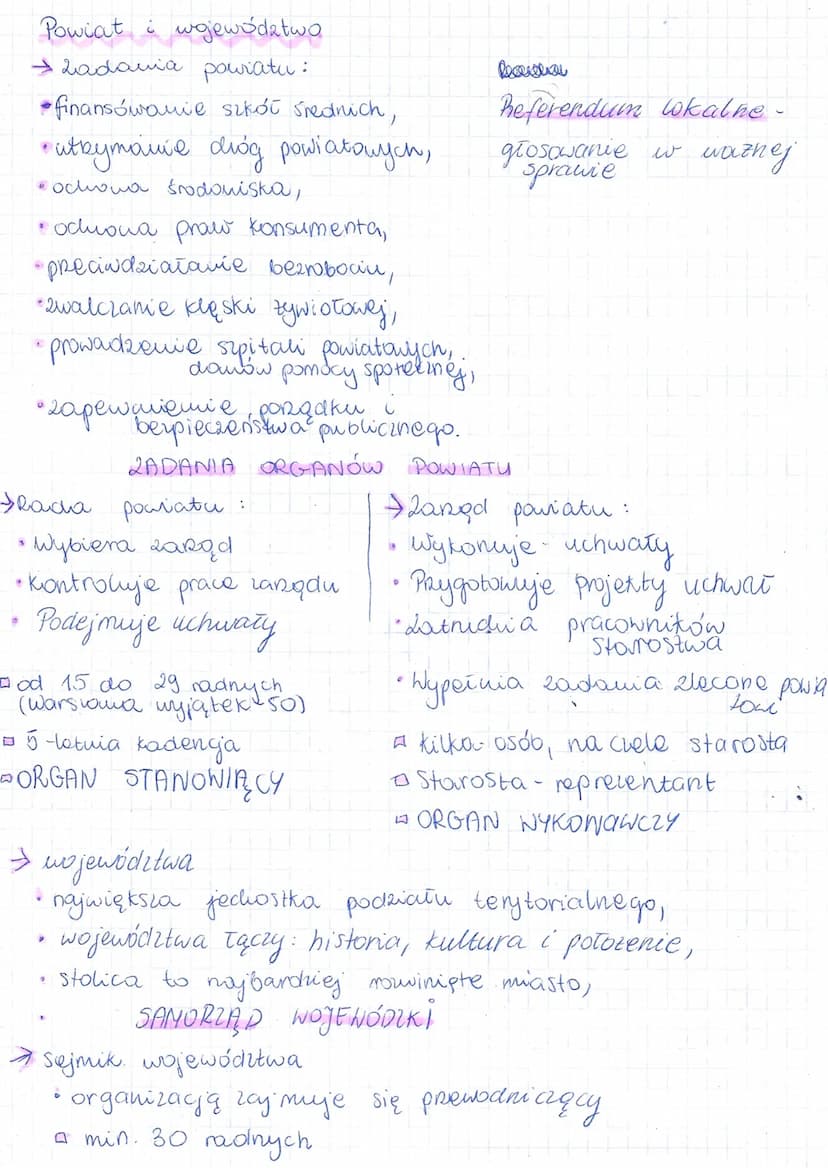 Powiat i województwo
→ zadania powiatu:
• finansowanie szkół średnich,
• utrzymanie dróg powiatowych,
• ochrona środowiska,
• ochrona praw konsumenta,
• przeciwdziałanie bezrobociu,
• zwalczanie klęski żywiołowej,
• prowadzenie szpitali powiatowych,
domów pomocy społecznej,
• zapewnienie porządku i
bezpieczeństwa publicznego.
Referendum lokalne -
głosowanie w ważnej
sprawie
ZADANIA ORGANÓW POWIATU
→ Rada powiatu:
• Wybiera zarząd
• Kontroluje prace zarządu
• Podejmuje uchwały
▫ od 15 do 29 radnych
(Warszawa wyjątek 50)
▫ 5-letnia kadencja
▫ ORGAN STANOWIĄCY
→ Zarząd powiatu:
• Wykonuje uchwały
• Przygotowuje projekty uchwał
• Zatrudnia pracowników
starostwa
• Wypełnia zadania zlecone powia
towi
▫ kilka osób, na czele starosta
▫ Starosta - reprezentant
▫ ORGAN WYKONAWCZY
→ województwa
• największa jednostka podziału terytorialnego,
• województwa łączy: historia, kultura i położenie,
• stolica to najbardziej rozwinięte miasto,
• SAMORZĄD WOJEWÓDZKI
→ Sejmik województwa
• organizacją zajmuje się przewodniczący
▫ min. 30 radnych